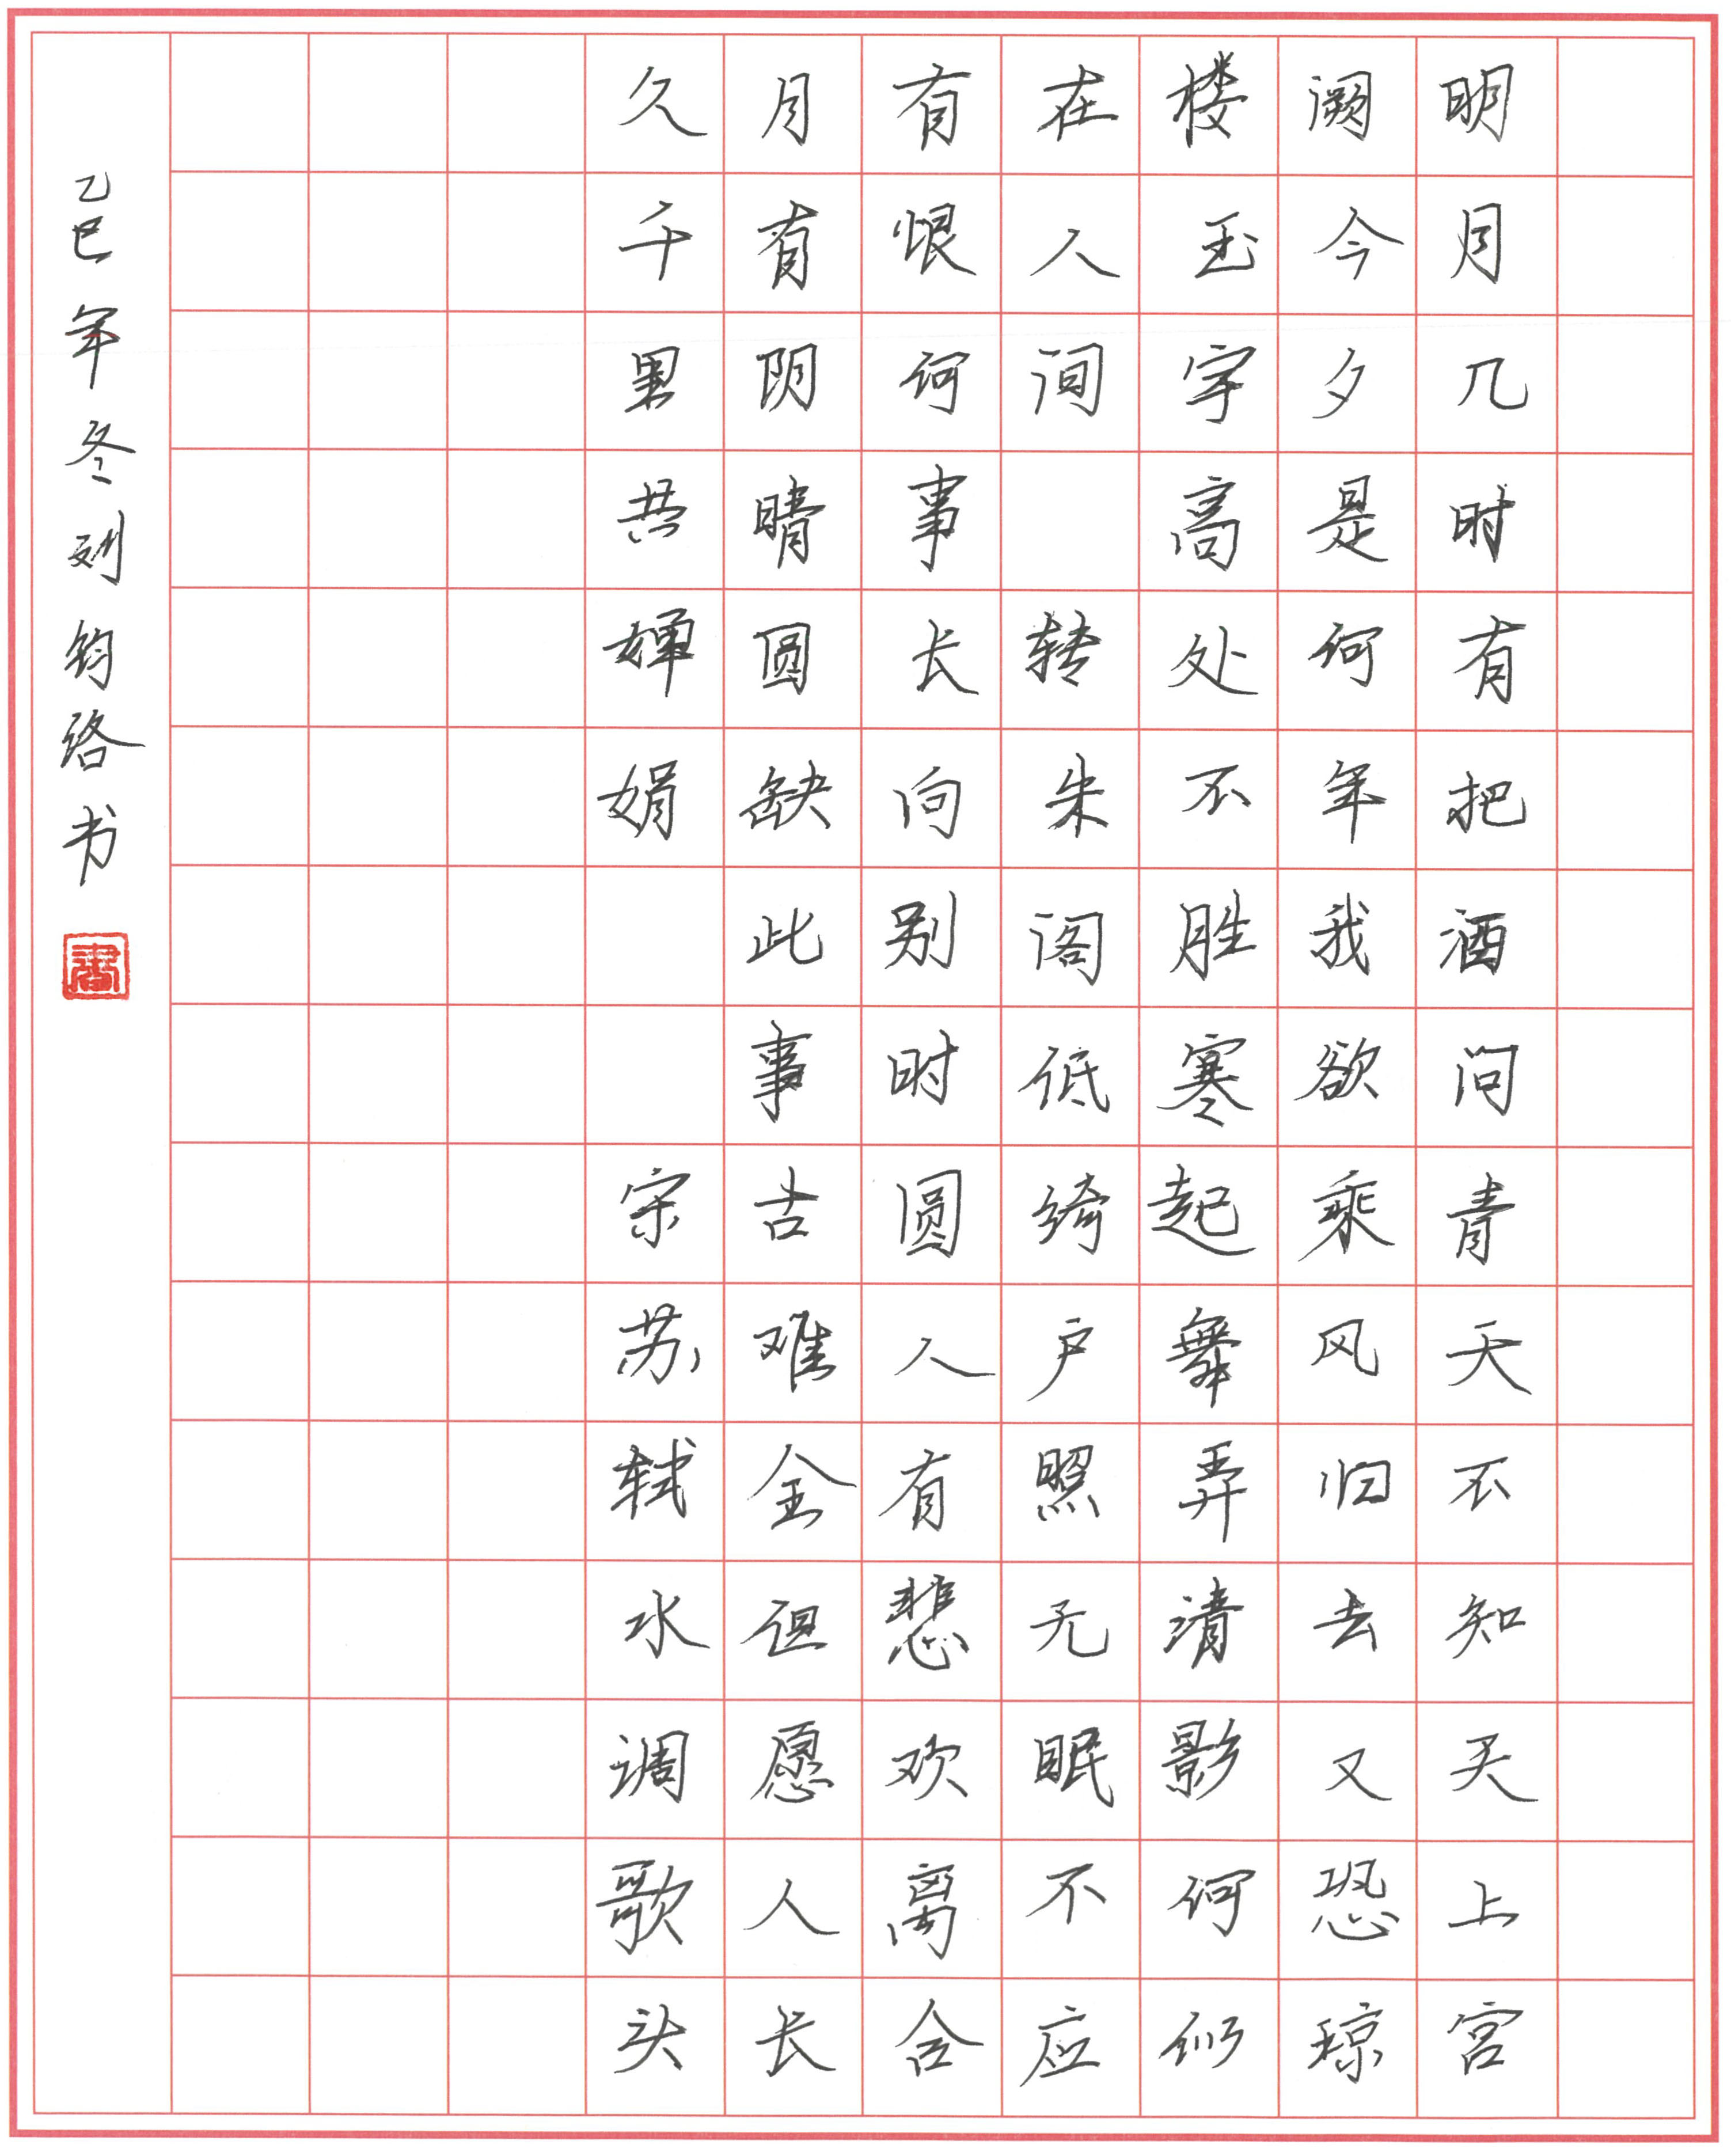 明月几时有把酒问青天不知天上宫
阙今夕是何年我欲乘风归去又恐琼
楼玉宇高处不胜寒起舞弄清影何似
在人间 转朱阁低绮户照无眠不应
有恨何事长向别时圆人有悲欢离合
月有阴晴圆缺此事古难全但愿人长
久千里共婵娟 宋苏轼水调歌头
乙巳年冬刘钧洛书